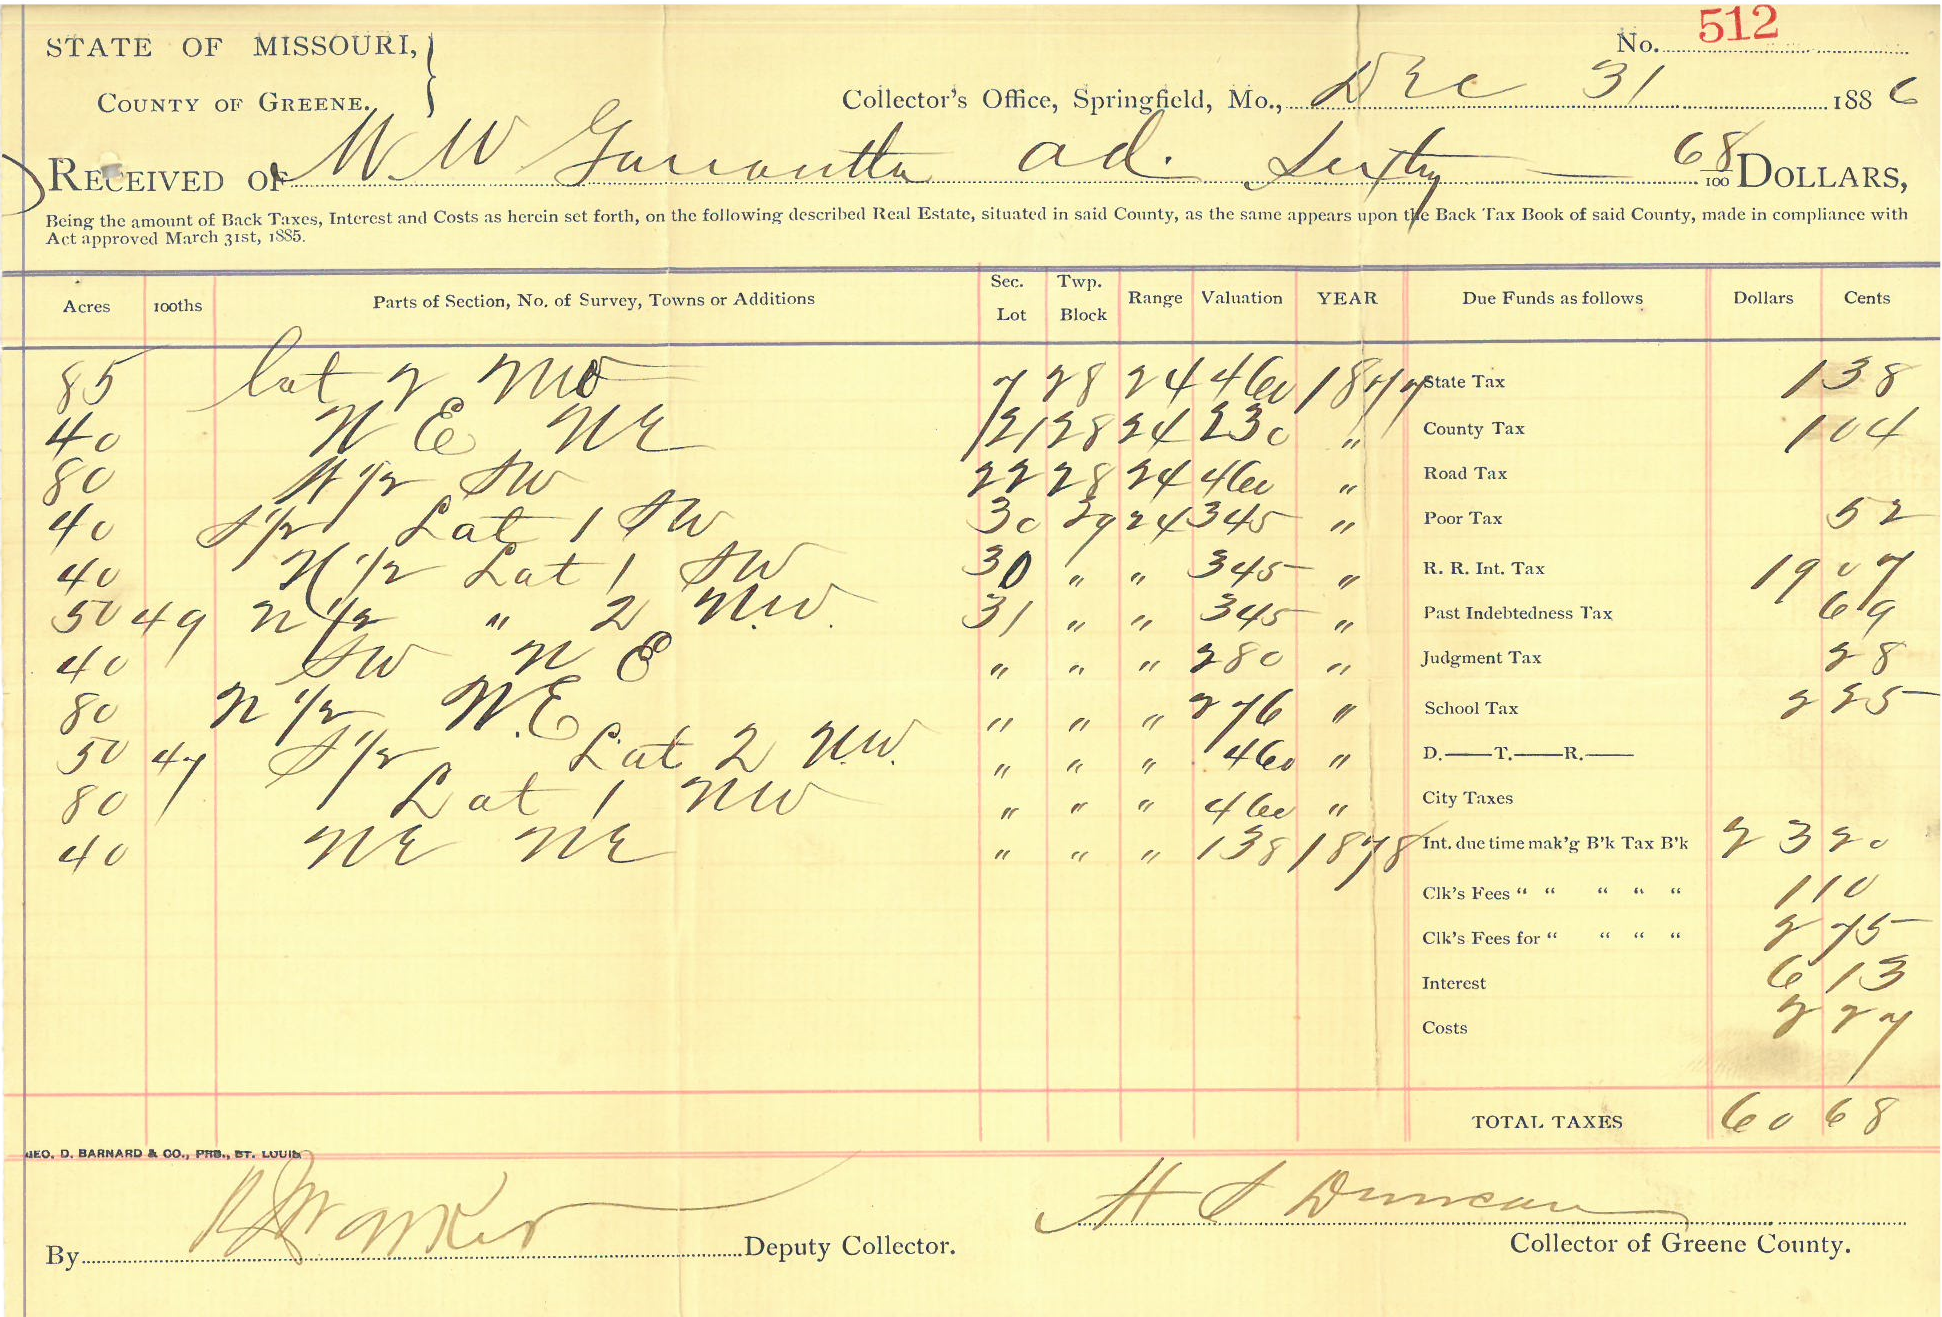 No. 512
STATE OF MISSOURI,
COUNTY OF GREENE.
Collector's Office, Springfield, Mo., Dec 31 1886
RECEIVED OF W W Garroutte ad. Sixty 68/100 DOLLARS,
Being the amount of Back Taxes, Interest and Costs as herein set forth, on the following described Real Estate, situated in said County, as the same appears upon the Back Tax Book of said County, made in compliance with
Act approved March 31st, 1885.
Acres 100ths Parts of Section, No. of Survey, Towns or Additions Sec. Lot Twp. Block Range Valuation YEAR Due Funds as follows Dollars Cents
85 Lot 2 NW 7 28 24 460 1877 State Tax 1 38
40 N E NE 21 28 24 230 " County Tax 1 04
80 N 1/2 SW 22 28 24 460 " Road Tax
40 S 1/2 Lot 1 SW 30 29 24 345 " Poor Tax 52
40 N 1/2 Lot 1 SW 30 " " 345 " R. R. Int. Tax 19 07
50 49 N 1/2 " 2 N.W. 31 " " 345 " Past Indebtedness Tax 69
40 SW N E " " " 280 " Judgment Tax 28
80 N 1/2 N.E " " " 276 " School Tax 2 25
50 47 S 1/2 Lot 2 N.W. " " " 460 " D.——T.——R.——
80 Lot 1 NW " " " 460 " City Taxes
40 NE NE " " " 138 1878 Int. due time mak'g B'k Tax B'k 23 20
Clk's Fees " " " " " 1 10
Clk's Fees for " " " " 2 75
Interest 6 13
Costs 2 27
TOTAL TAXES 60 68
GEO. D. BARNARD & CO., PRS., ST. LOUIS
H S Duncan
By Deputy Collector.
Collector of Greene County.